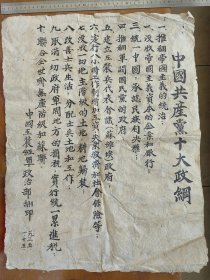 中國共產黨十大政綱
一推翻帝國主義的統治
一沒收帝國主義資本的企業和銀行
三統一中國承認民族自決權
四推翻軍閥國民黨的政府
五建立工農兵代表會議(蘇維埃)政府
六實行八小時工作制增加工資失業救濟與社會保險等
七沒收一切地主階級的土地耕地歸農
八改善兵士生活分配土兵土地和工作
九取消一切政府軍閥地方的捐稅實行統一累進稅
十聯合全世界無產階級和蘇聯
政治部翻印